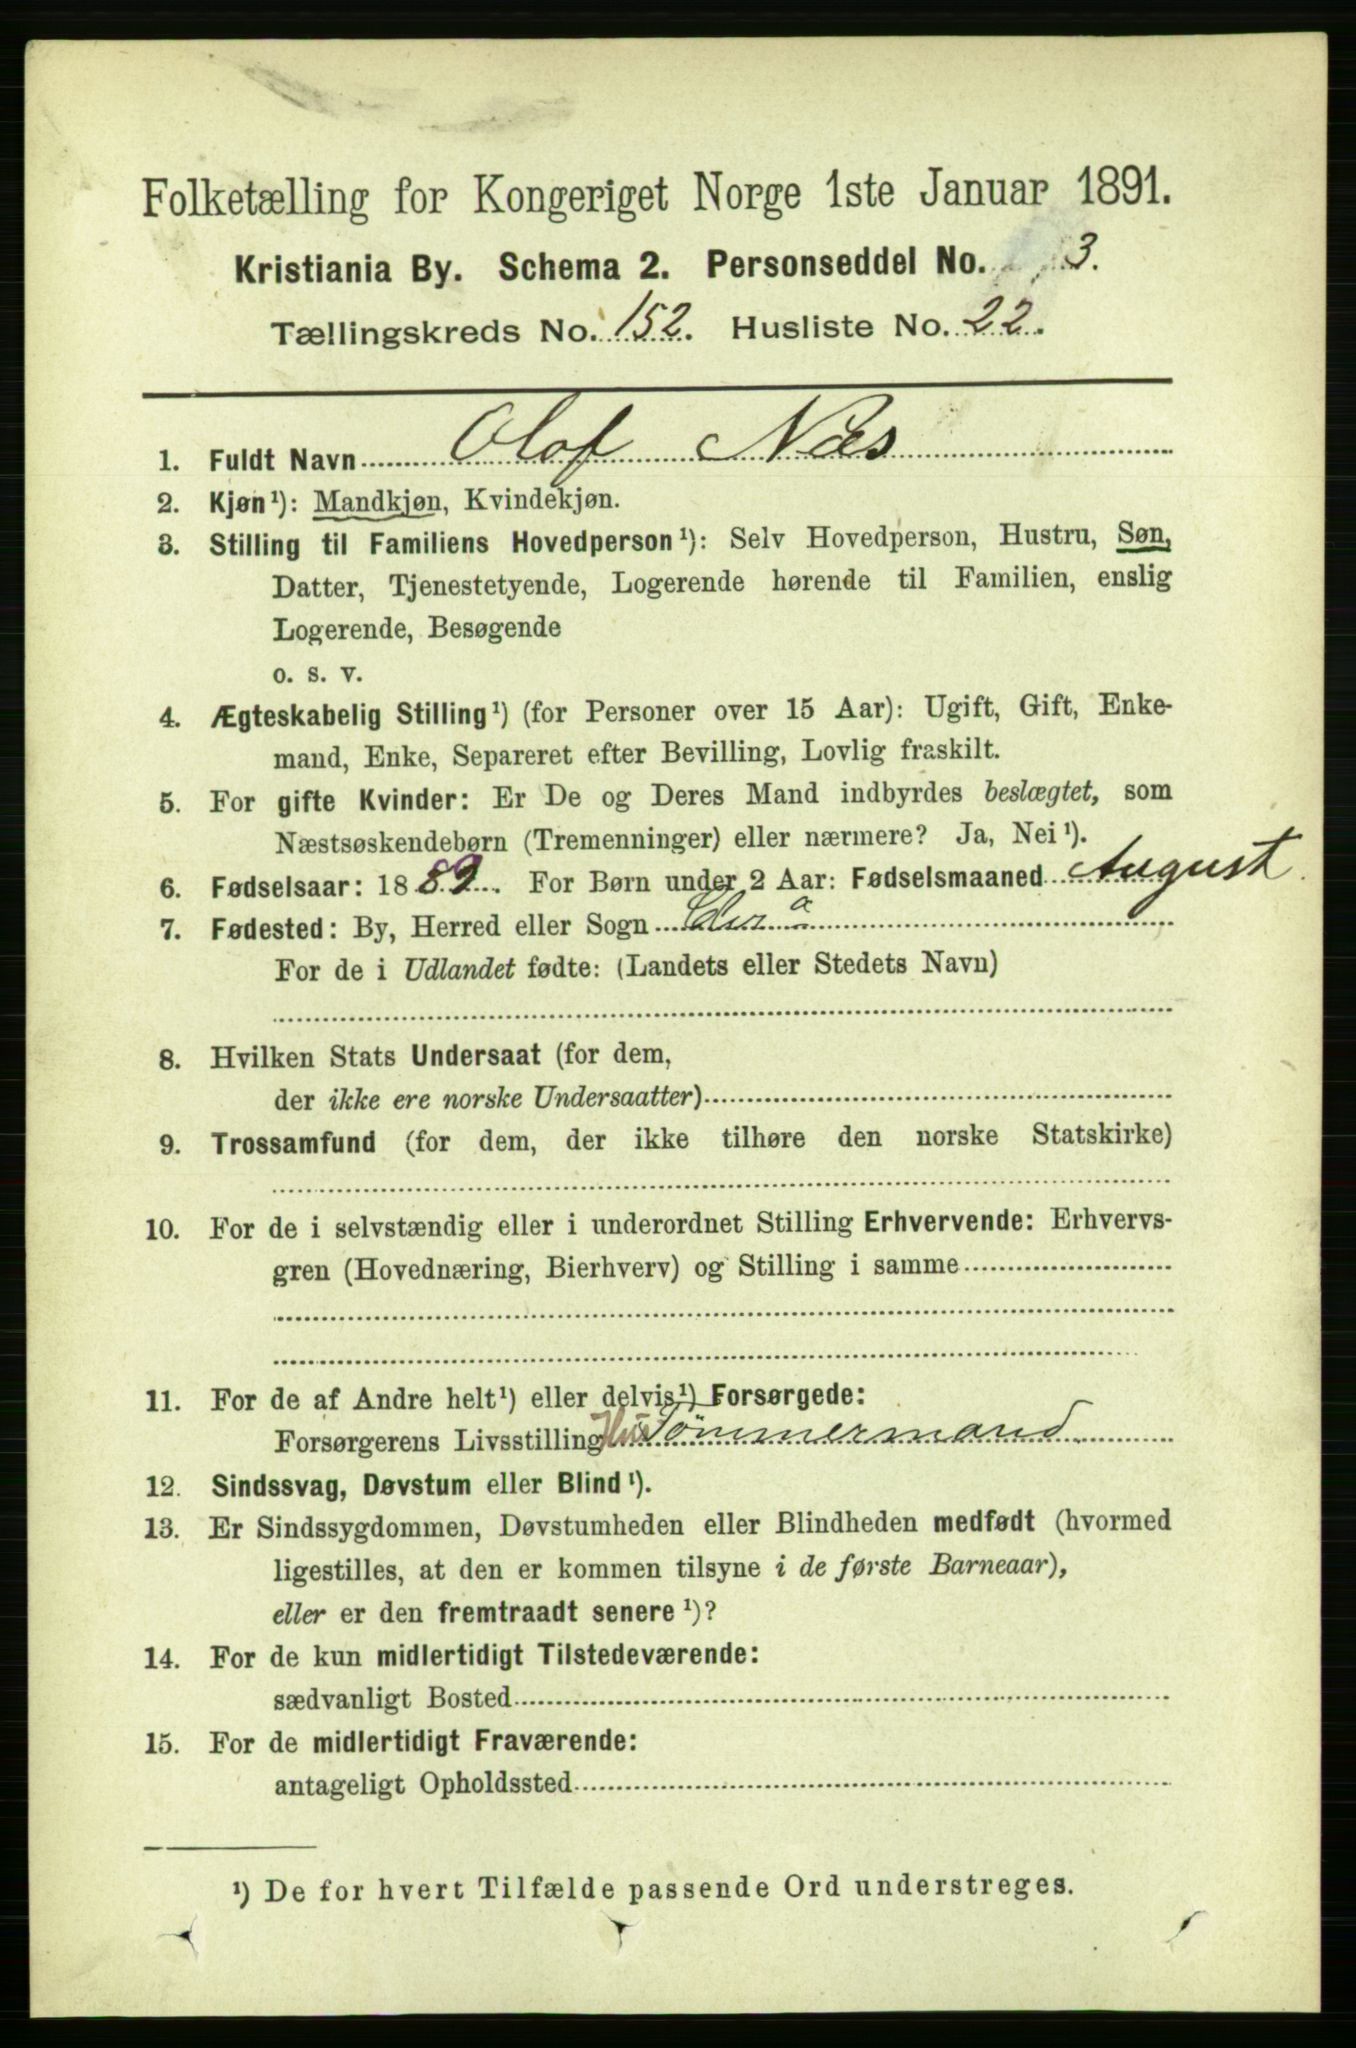 Folketælling for Kongeriget Norge 1ste Januar 1891.
Kristiania By. Schema 2. Personseddel No. 3.
Tællingskreds No. 152. Husliste No. 22.
1. Fuldt Navn Olof Næs
2. Kjøn¹): Mandkjøn, Kvindekjøn.
3. Stilling til Familiens Hovedperson¹): Selv Hovedperson, Hustru, Søn,
Datter, Tjenestetyende, Logerende hørende til Familien, enslig
Logerende, Besøgende
o. s. v.
4. Ægteskabelig Stilling¹) (for Personer over 15 Aar): Ugift, Gift, Enke-
mand, Enke, Separeret efter Bevilling, Lovlig fraskilt.
5. For gifte Kvinder: Er De og Deres Mand indbyrdes beslægtet, som
Næstsøskendebørn (Tremenninger) eller nærmere? Ja, Nei¹).
6. Fødselsaar: 1889. For Børn under 2 Aar: Fødselsmaaned August.
7. Fødested: By, Herred eller Sogn
For de i Udlandet fødte: (Landets eller Stedets Navn)
8. Hvilken Stats Undersaat (for dem,
der ikke ere norske Undersaatter)
9. Trossamfund (for dem, der ikke tilhøre den norske Statskirke)
10. For de i selvstændig eller i underordnet Stilling Erhvervende: Erhvervs-
gren (Hovednæring, Bierhverv) og Stilling i samme
11. For de af Andre helt¹) eller delvis¹) Forsørgede:
Forsørgerens Livsstilling Hus Tømmermand
12. Sindssvag, Døvstum eller Blind¹).
13. Er Sindssygdommen, Døvstumheden eller Blindheden medfødt (hvormed
ligestilles, at den er kommen tilsyne i de første Barneaar),
eller er den fremtraadt senere¹)?
14. For de kun midlertidigt Tilstedeværende:
sædvanligt Bosted
15. For de midlertidigt Fraværende:
antageligt Opholdssted
¹) De for hvert Tilfælde passende Ord understreges.